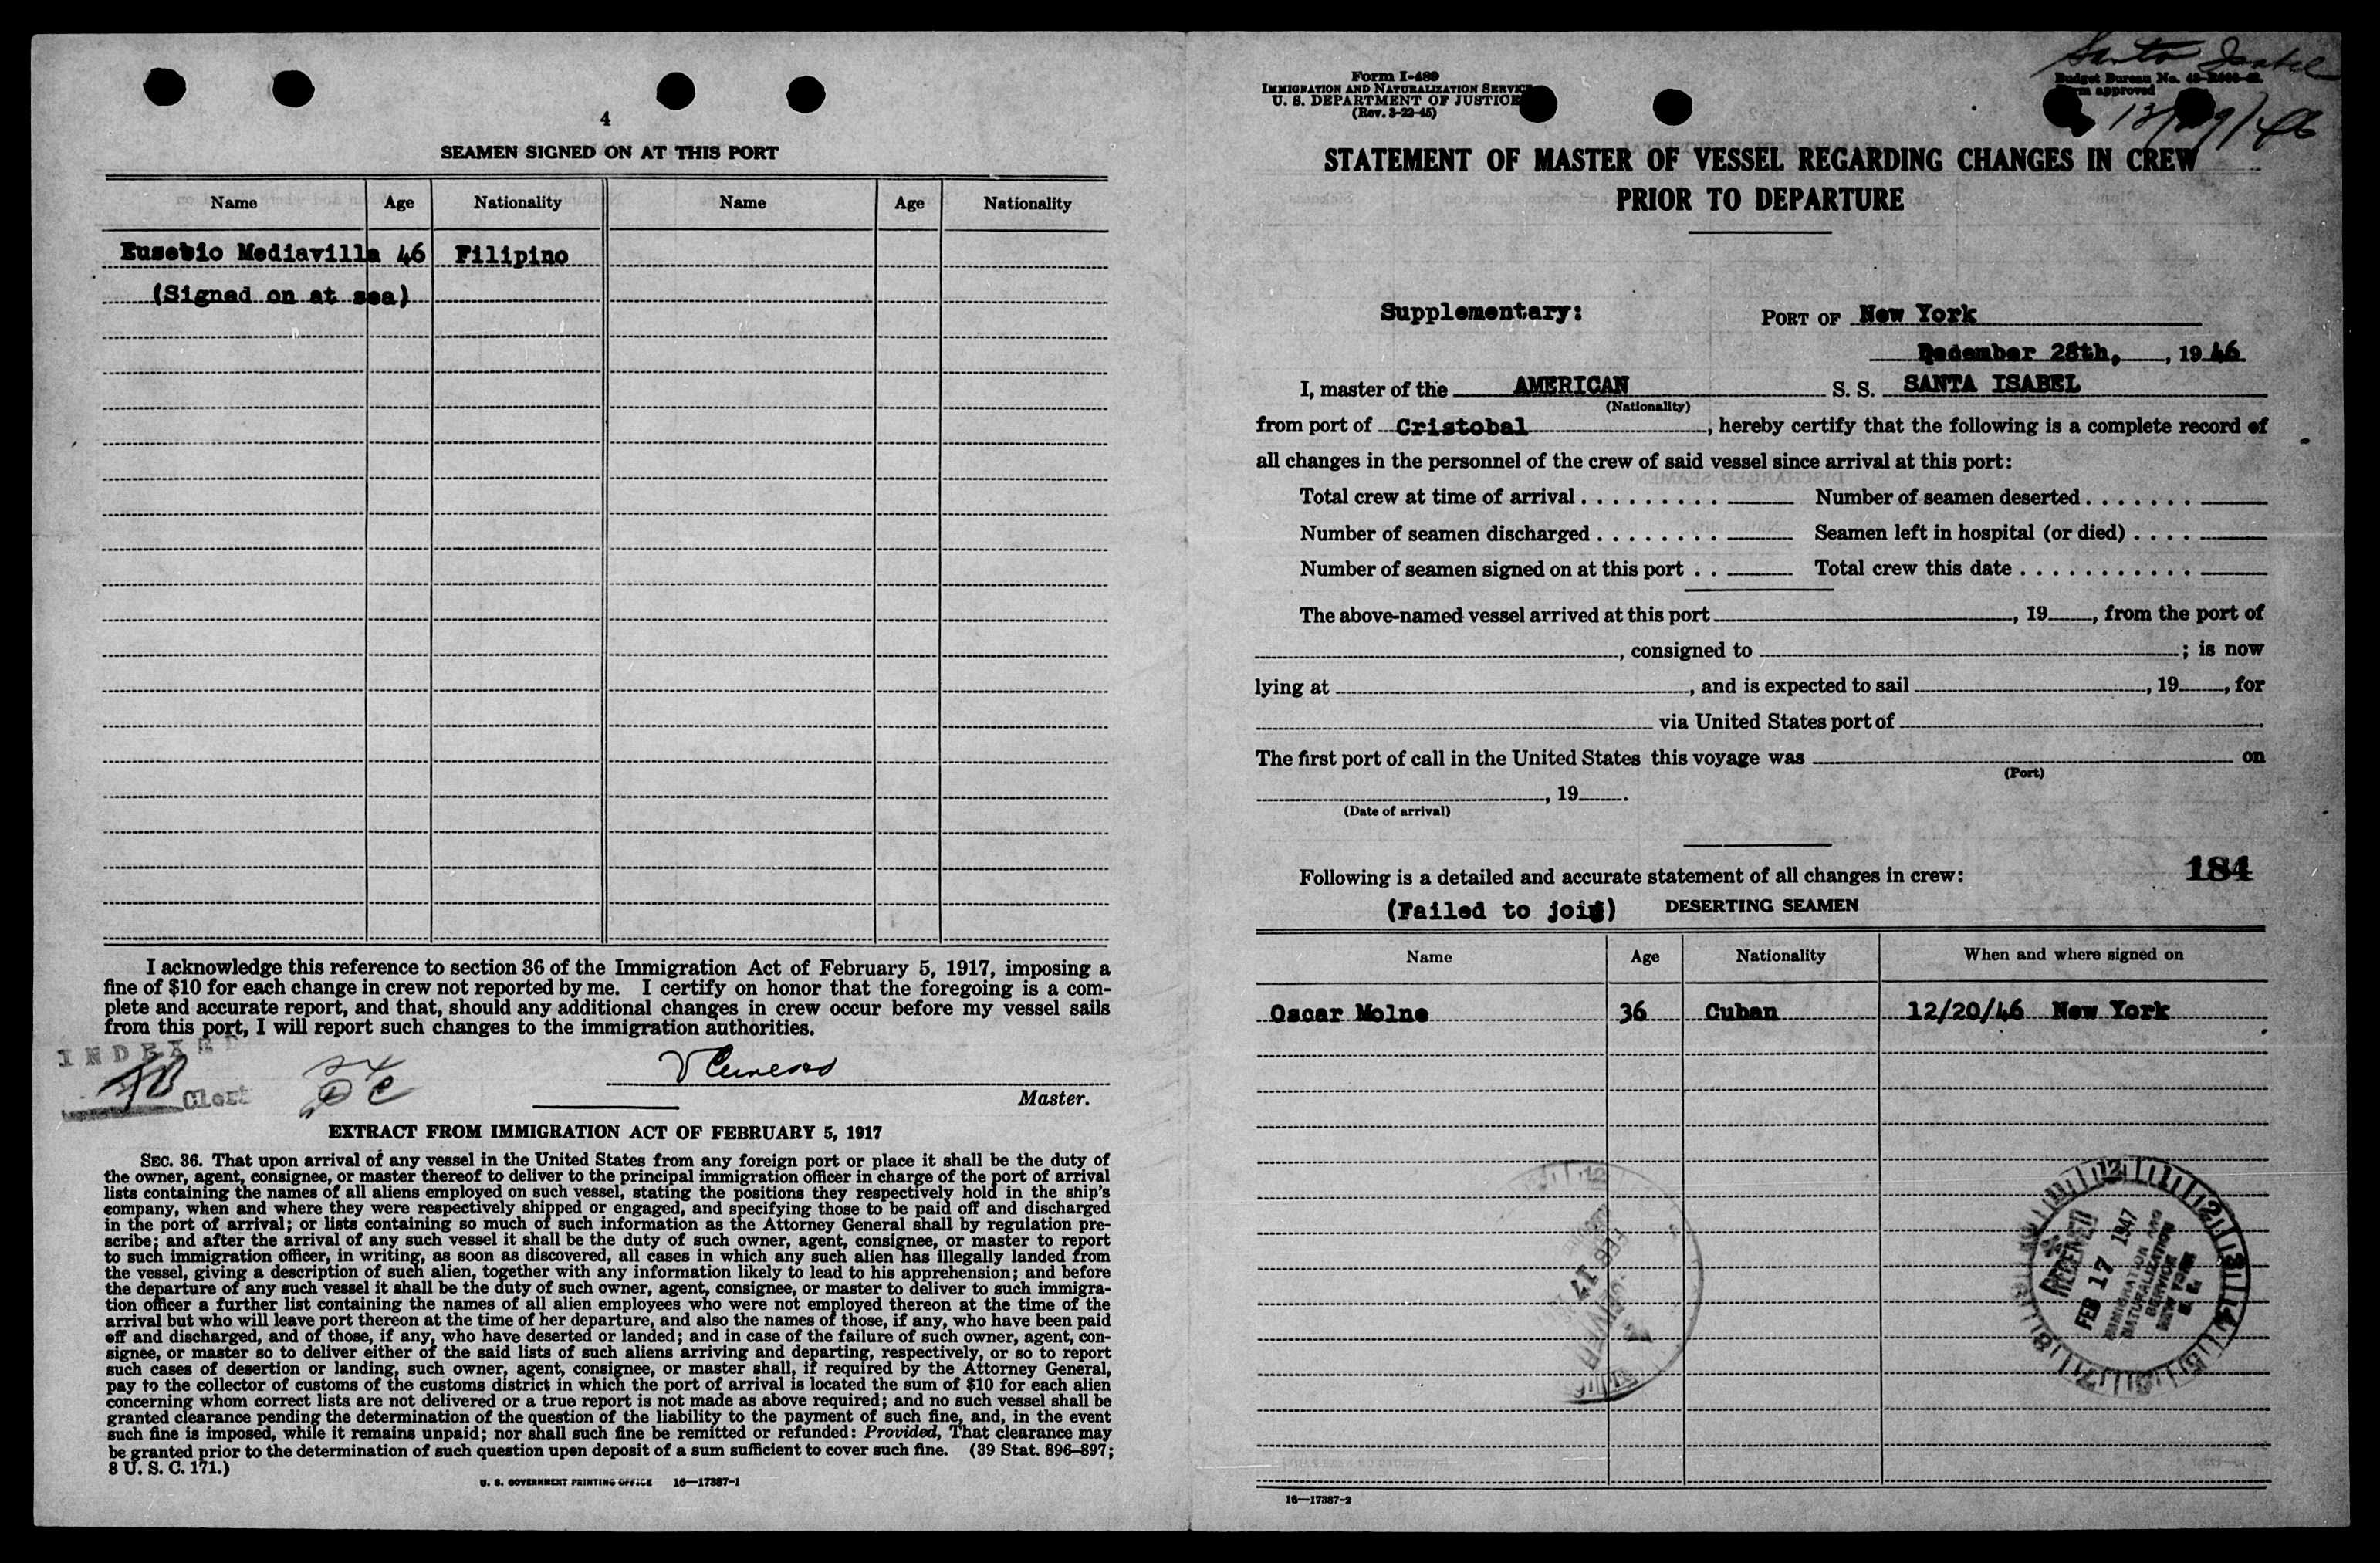 4
SEAMEN SIGNED ON AT THIS PORT
Name Age Nationality Name Age Nationality
Eusebio Mediavilla 46 Filipino
(Signed on at sea)
I acknowledge this reference to section 36 of the Immigration Act of February 5, 1917, imposing a
fine of $10 for each change in crew not reported by me. I certify on honor that the foregoing is a com-
plete and accurate report, and that, should any additional changes in crew occur before my vessel sails
from this port, I will report such changes to the immigration authorities.
INDEXED
Clerk
Master.
EXTRACT FROM IMMIGRATION ACT OF FEBRUARY 5, 1917
SEC. 36. That upon arrival of any vessel in the United States from any foreign port or place it shall be the duty of
the owner, agent, consignee, or master thereof to deliver to the principal immigration officer in charge of the port of arrival
lists containing the names of all aliens employed on such vessel, stating the positions they respectively hold in the ship's
company, when and where they were respectively shipped or engaged, and specifying those to be paid off and discharged
in the port of arrival; or lists containing so much of such information as the Attorney General shall by regulation pre-
scribe; and after the arrival of any such vessel it shall be the duty of such owner, agent, consignee, or master to report
to such immigration officer, in writing, as soon as discovered, all cases in which any such alien has illegally landed from
the vessel, giving a description of such alien, together with any information likely to lead to his apprehension; and before
the departure of any such vessel it shall be the duty of such owner, agent, consignee, or master to deliver to such immigra-
tion officer a further list containing the names of all alien employees who were not employed thereon at the time of the
arrival but who will leave port thereon at the time of her departure, and also the names of those, if any, who have been paid
off and discharged, and of those, if any, who have deserted or landed; and in case of the failure of such owner, agent, con-
signee, or master so to deliver either of the said lists of such aliens arriving and departing, respectively, or so to report
such cases of desertion or landing, such owner, agent, consignee, or master shall, if required by the Attorney General,
pay to the collector of customs of the customs district in which the port of arrival is located the sum of $10 for each alien
concerning whom correct lists are not delivered or a true report is not made as above required; and no such vessel shall be
granted clearance pending the determination of the question of the liability to the payment of such fine, and, in the event
such fine is imposed, while it remains unpaid; nor shall such fine be remitted or refunded: Provided, That clearance may
be granted prior to the determination of such question upon deposit of a sum sufficient to cover such fine. (39 Stat. 896–897;
8 U. S. C. 171.)
U. S. GOVERNMENT PRINTING OFFICE 16—17387-1
Santa Isabel
Form I-489
IMMIGRATION AND NATURALIZATION SERVICE
U. S. DEPARTMENT OF JUSTICE
(Rev. 3-22-45)
Budget Bureau No.
Form approved
12/29/46
STATEMENT OF MASTER OF VESSEL REGARDING CHANGES IN CREW
PRIOR TO DEPARTURE
Supplementary: PORT OF New York
December 28th, , 1946
I, master of the AMERICAN S. S. SANTA ISABEL
(Nationality)
from port of Cristobal, hereby certify that the following is a complete record of
all changes in the personnel of the crew of said vessel since arrival at this port:
Total crew at time of arrival . . . . . . . . . Number of seamen deserted . . . . . . .
Number of seamen discharged . . . . . . . . Seamen left in hospital (or died) . . . .
Number of seamen signed on at this port . . Total crew this date . . . . . . . . . . .
The above-named vessel arrived at this port , 19 , from the port of
, consigned to ; is now
lying at , and is expected to sail , 19 , for
via United States port of
The first port of call in the United States this voyage was on
(Port)
, 19 .
(Date of arrival)
184
Following is a detailed and accurate statement of all changes in crew:
(Failed to join) DESERTING SEAMEN
Name Age Nationality When and where signed on
Oscar Molne 36 Cuban 12/20/46 New York
RECEIVED
FEB 17 1947
IMMIGRATION AND
NATURALIZATION
SERVICE
NEW YORK
16—17387-2